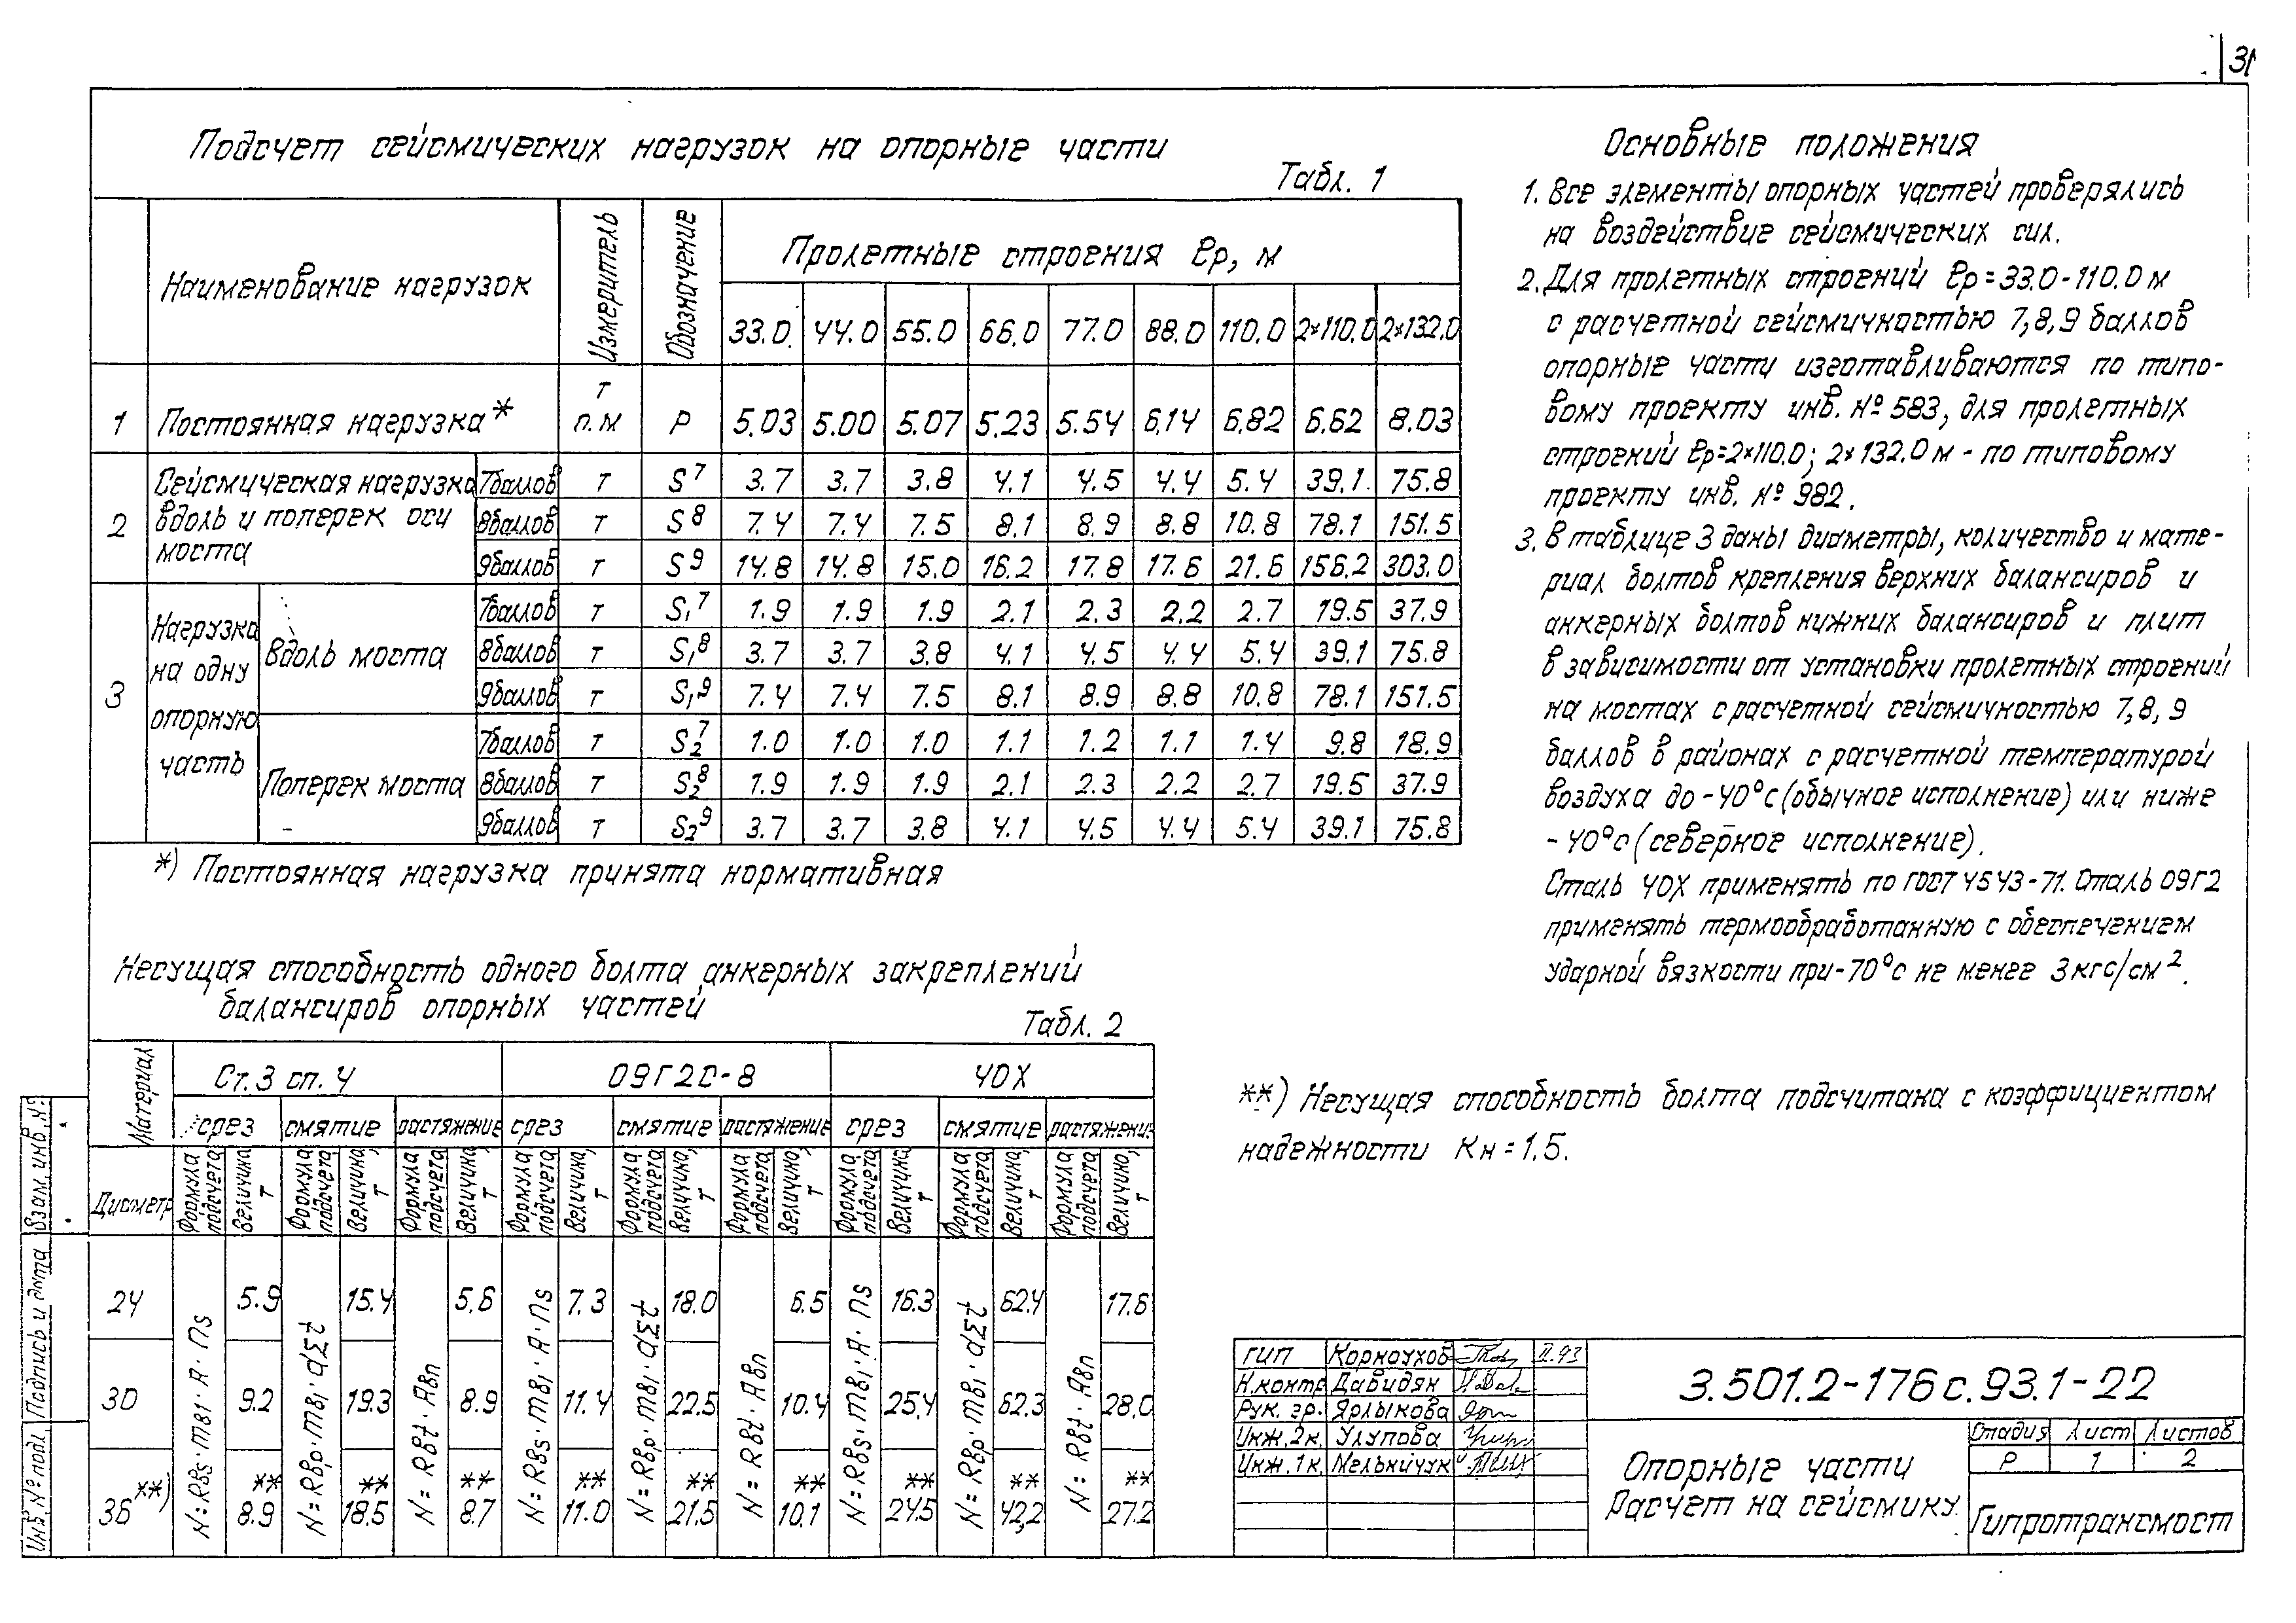 31
Подсчет сейсмических нагрузок на опорные части
Табл. 1
Наименование нагрузок | Измеритель | Обозначение | Пролетные строения ℓр, м
33.0 | 44.0 | 55.0 | 66.0 | 77.0 | 88.0 | 110.0 | 2×110.0 | 2×132.0
1 | Постоянная нагрузка* | т п.м | Р | 5.03 | 5.00 | 5.07 | 5.23 | 5.54 | 6.14 | 6.82 | 6.62 | 8.03
2 | Сейсмическая нагрузка вдоль и поперек оси моста | 7баллов | т | S⁷ | 3.7 | 3.7 | 3.8 | 4.1 | 4.5 | 4.4 | 5.4 | 39.1 | 75.8
8баллов | т | S⁸ | 7.4 | 7.4 | 7.5 | 8.1 | 8.9 | 8.8 | 10.8 | 78.1 | 151.5
9баллов | т | S⁹ | 14.8 | 14.8 | 15.0 | 16.2 | 17.8 | 17.6 | 21.6 | 156.2 | 303.0
3 | Нагрузка на одну опорную часть | Вдоль моста | 7баллов | т | S₁⁷ | 1.9 | 1.9 | 1.9 | 2.1 | 2.3 | 2.2 | 2.7 | 19.5 | 37.9
8баллов | т | S₁⁸ | 3.7 | 3.7 | 3.8 | 4.1 | 4.5 | 4.4 | 5.4 | 39.1 | 75.8
9баллов | т | S₁⁹ | 7.4 | 7.4 | 7.5 | 8.1 | 8.9 | 8.8 | 10.8 | 78.1 | 151.5
Поперек моста | 7баллов | т | S₂⁷ | 1.0 | 1.0 | 1.0 | 1.1 | 1.2 | 1.1 | 1.4 | 9.8 | 18.9
8баллов | т | S₂⁸ | 1.9 | 1.9 | 1.9 | 2.1 | 2.3 | 2.2 | 2.7 | 19.5 | 37.9
9баллов | т | S₂⁹ | 3.7 | 3.7 | 3.8 | 4.1 | 4.5 | 4.4 | 5.4 | 39.1 | 75.8
*) Постоянная нагрузка принята нормативная
Несущая способность одного болта анкерных закреплений
балансиров опорных частей
Табл. 2
Материал | Ст.3 сп. 4 | 09Г2С-8 | 40Х
срез | смятие | растяжение | срез | смятие | растяжение | срез | смятие | растяжени-
Диаметр | Формула подсчета | Величина, т | Формула подсчета | Величина, т | Формула подсчета | Величина, т | Формула подсчета | Величина, т | Формула подсчета | Величина, т | Формула подсчета | Величина, т | Формула подсчета | Величина, т | Формула подсчета | Величина, т | Формула подсчета | Величина, т
N=Rвs·mв1·A·ns | N=Rвp·mв1·dΣt | N=Rвt·Aвn | N=Rвs·mв1·A·ns | N=Rвp·mв1·dΣt | N=Rвt·Aвn | N=Rвs·mв1·A·ns | N=Rвp·mв1·dΣt | N=Rвt·Aвn
24 | 5.9 | 15.4 | 5.6 | 7.3 | 18.0 | 6.5 | 16.3 | 62.4 | 17.6
30 | 9.2 | 19.3 | 8.9 | 11.4 | 22.5 | 10.4 | 25.4 | 62.3 | 28.0
36**) | ** 8.9 | ** 18.5 | ** 8.7 | ** 11.0 | ** 21.5 | ** 10.1 | ** 24.5 | ** 42,2 | ** 27.2
Основные положения
1. Все элементы опорных частей проверялись
на воздействие сейсмических сил.
2. Для пролетных строений ℓр=33.0-110.0 м
с расчетной сейсмичностью 7,8,9 баллов
опорные части изготавливаются по типо-
вому проекту инв. № 583, для пролетных
строений ℓр=2×110.0; 2×132.0 м - по типовому
проекту инв. № 982.
3. В таблице 3 даны диаметры, количество и мате-
риал болтов крепления верхних балансиров и
анкерных болтов нижних балансиров и плит
в зависимости от установки пролетных строений
на мостах с расчетной сейсмичностью 7,8,9
баллов в районах с расчетной температурой
воздуха до -40°с (обычное исполнение) или ниже
-40°с (северное исполнение).
Сталь 40Х применять по ГОСТ 4543-71. Сталь 09Г2
применять термообработанную с обеспечением
ударной вязкости при -70°с не менее 3 кгс/см².
**) Несущая способность болта подсчитана с коэффициентом
надежности Кн=1.5.
ГИП | Корноухов | II.93
Н.контр | Давидян
Рук. гр. | Ярлыкова
Инж.2к. | Улупова
Инж.1к. | Мельничук
3.501.2-176с.93.1-22
Опорные части
Расчет на сейсмику.
Стадия | Лист | Листов
Р | 1 | 2
Гипротрансмост
Взам. инв. №
Подпись и дата
Инв. № подл.